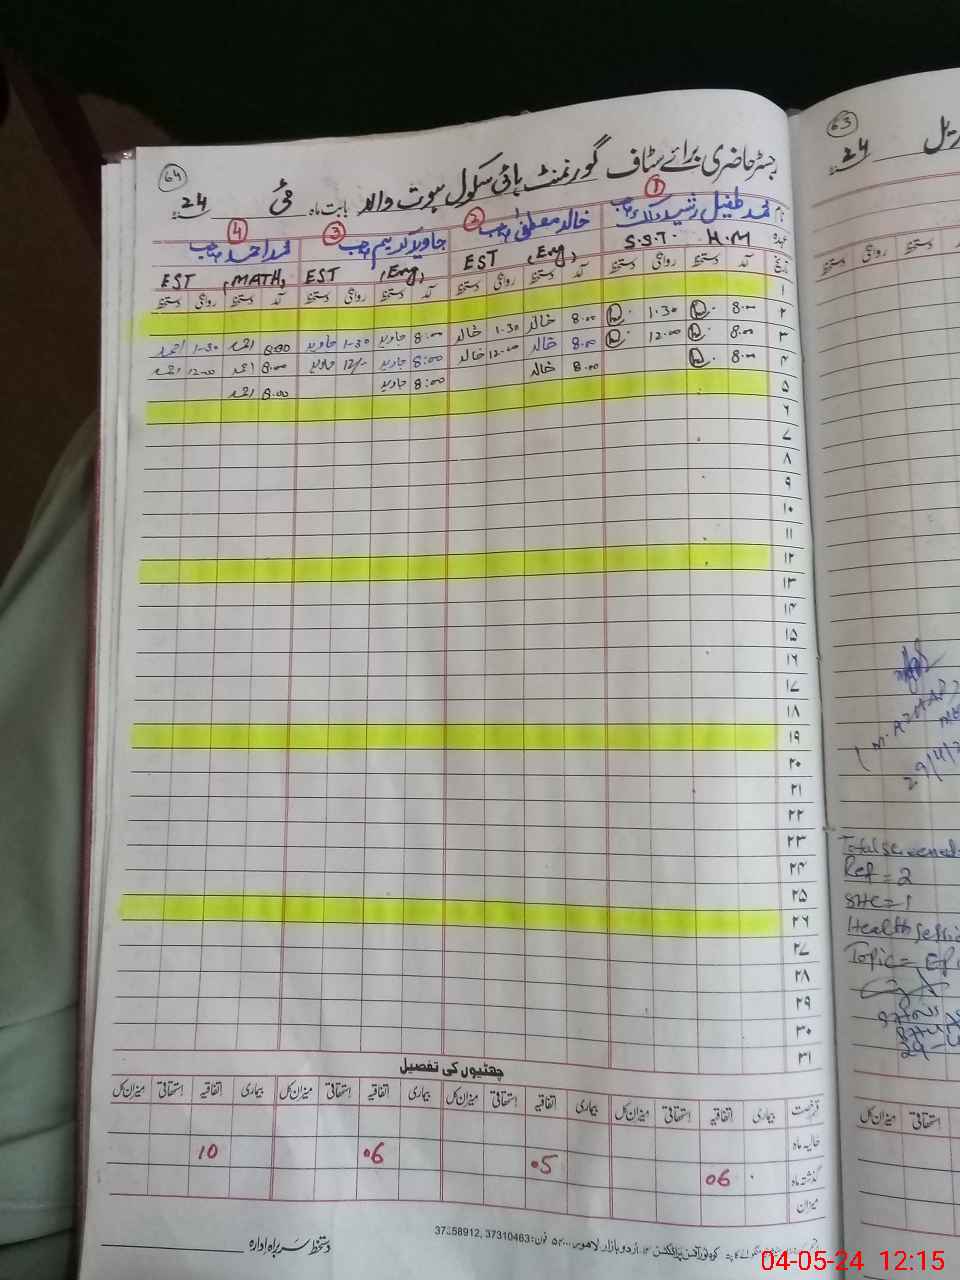 64
رجسٹر حاضری برائے سٹاف گورنمنٹ ہائی سکول سوت والد بابت ماہ مئی 24
نام ① محمد طفیل رشید ② خالد مصطفیٰ صاحب ③ جاوید کریم صاحب ④ محمد احمد صاحب
عہدہ S.S.T. H.M EST (Eng) EST (Eng) EST (MATH)
تاریخ آمد دستخط روانگی دستخط آمد دستخط روانگی دستخط آمد دستخط روانگی دستخط آمد دستخط روانگی دستخط
۱
۲ 8.00 1.30 8.00 خالد 1.30 خالد 8:00 جاوید 1-30 جاوید 8.00 احمد 1-30 احمد
۳ 8.00 12.00 8.00 خالد 12.00 خالد 8:00 جاوید 12/- جاوید 8.00 احمد 12.00 احمد
۴ 8.00 8.00 خالد 8:00 جاوید 8.00 احمد
۵
۶
۷
۸
۹
۱۰
۱۱
۱۲
۱۳
۱۴
۱۵
۱۶
۱۷
۱۸
۱۹
۲۰
۲۱
۲۲
۲۳
۲۴
۲۵
۲۶
۲۷
۲۸
۲۹
۳۰
۳۱
چھٹیوں کی تفصیل
قسم رخصت بیماری اتفاقیہ استحقاقی میزان کل بیماری اتفاقیہ استحقاقی میزان کل بیماری اتفاقیہ استحقاقی میزان کل بیماری اتفاقیہ استحقاقی میزان کل
حالیہ ماہ
گذشتہ ماہ 06 05 06 10
میزان
دستخط سربراہ ادارہ
اردو بازار لاہور فون: 37310463, 37358912
63
24
اپریل
دستخط روانگی دستخط
29/4/2
Ref = 2
SHC = 1
Topic =
میزان کل استحقاقی
04-05-24 12:15